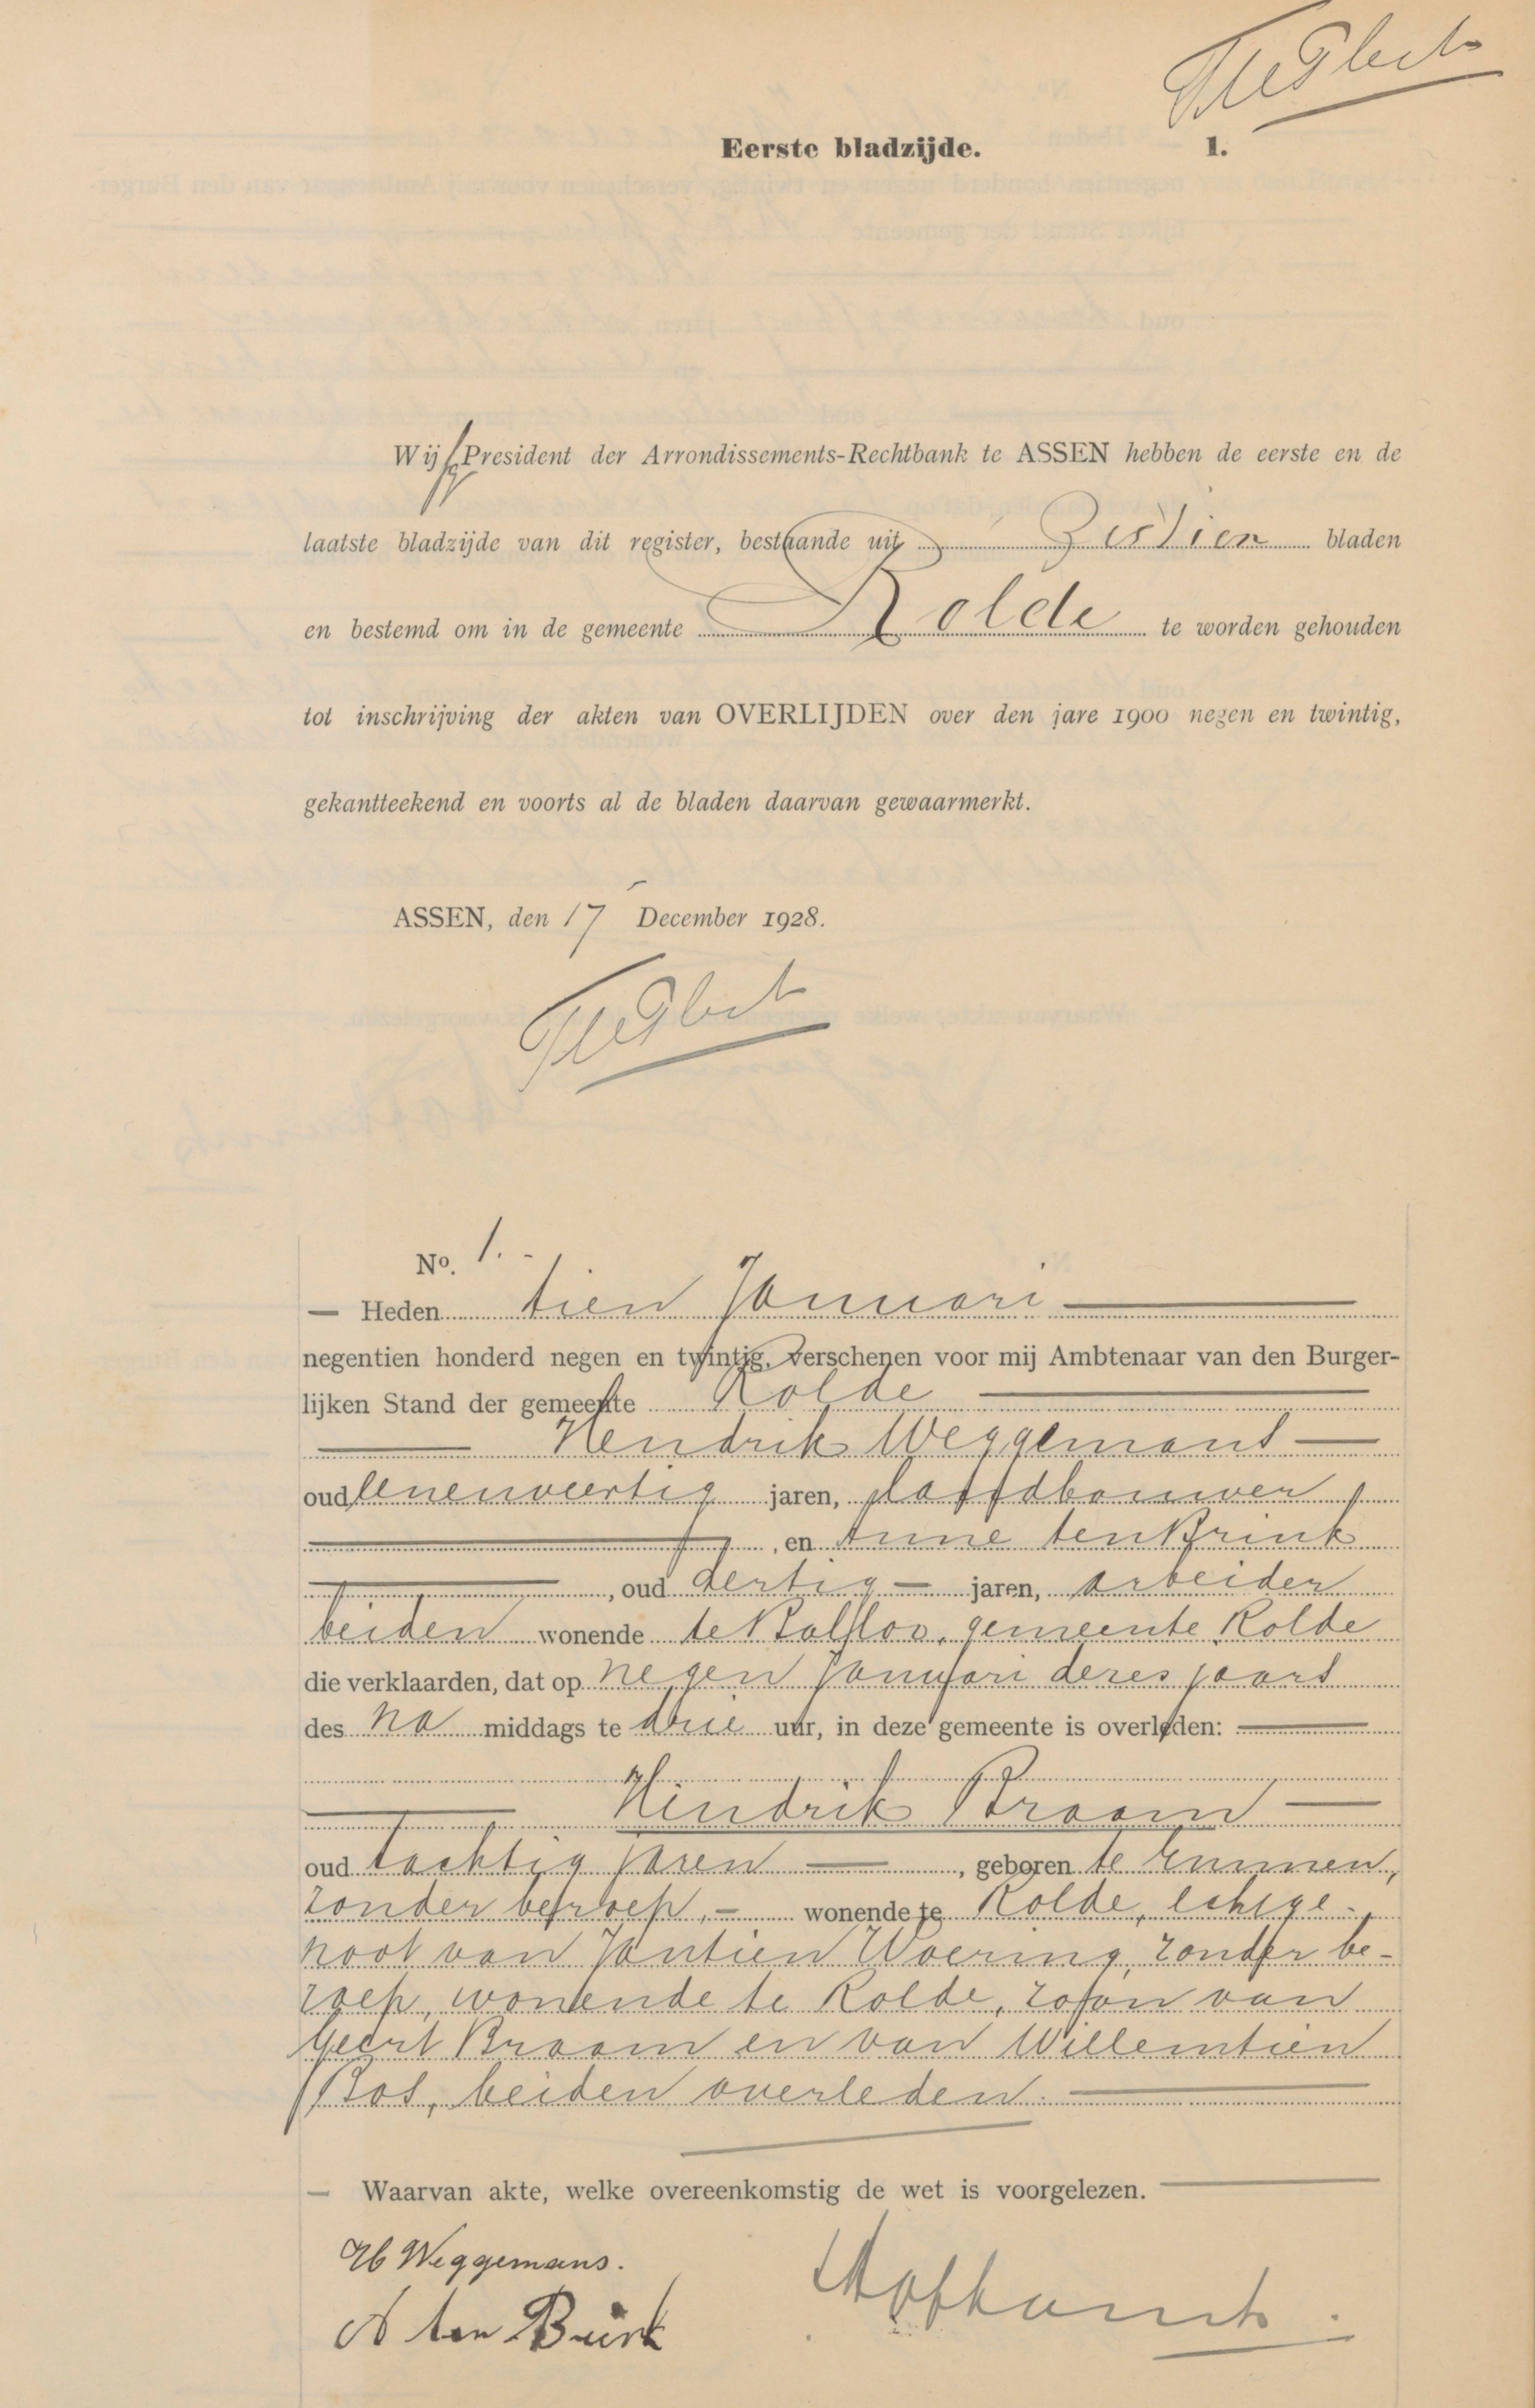 Eerste bladzijde. 1.
Wij President der Arrondissements-Rechtbank te ASSEN hebben de eerste en de
laatste bladzijde van dit register, bestaande uit Zestien bladen
en bestemd om in de gemeente Rolde te worden gehouden
tot inschrijving der akten van OVERLIJDEN over den jare 1900 negen en twintig,
gekantteekend en voorts al de bladen daarvan gewaarmerkt.
ASSEN, den 17 December 1928.
No. 1.-
— Heden tien Januari
negentien honderd negen en twintig, verschenen voor mij Ambtenaar van den Burger-
lijken Stand der gemeente Rolde
Hendrik Weggemans
oud eenenveertig jaren, landbouwer
, en Anne ten Brink
, oud dertig jaren, arbeider
beiden wonende te Balloo, gemeente Rolde
die verklaarden, dat op negen Januari dezes jaars
des na middags te drie uur, in deze gemeente is overleden:
Hindrik Braam
oud tachtig jaren, geboren te Emmen,
zonder beroep, wonende te Rolde, echtge-
noot van Jantien Woering, zonder be-
roep, wonende te Rolde, zoon van
Geert Braam en van Willemtien
Bos, beiden overleden.
— Waarvan akte, welke overeenkomstig de wet is voorgelezen.
H Weggemans.
A ten Brink